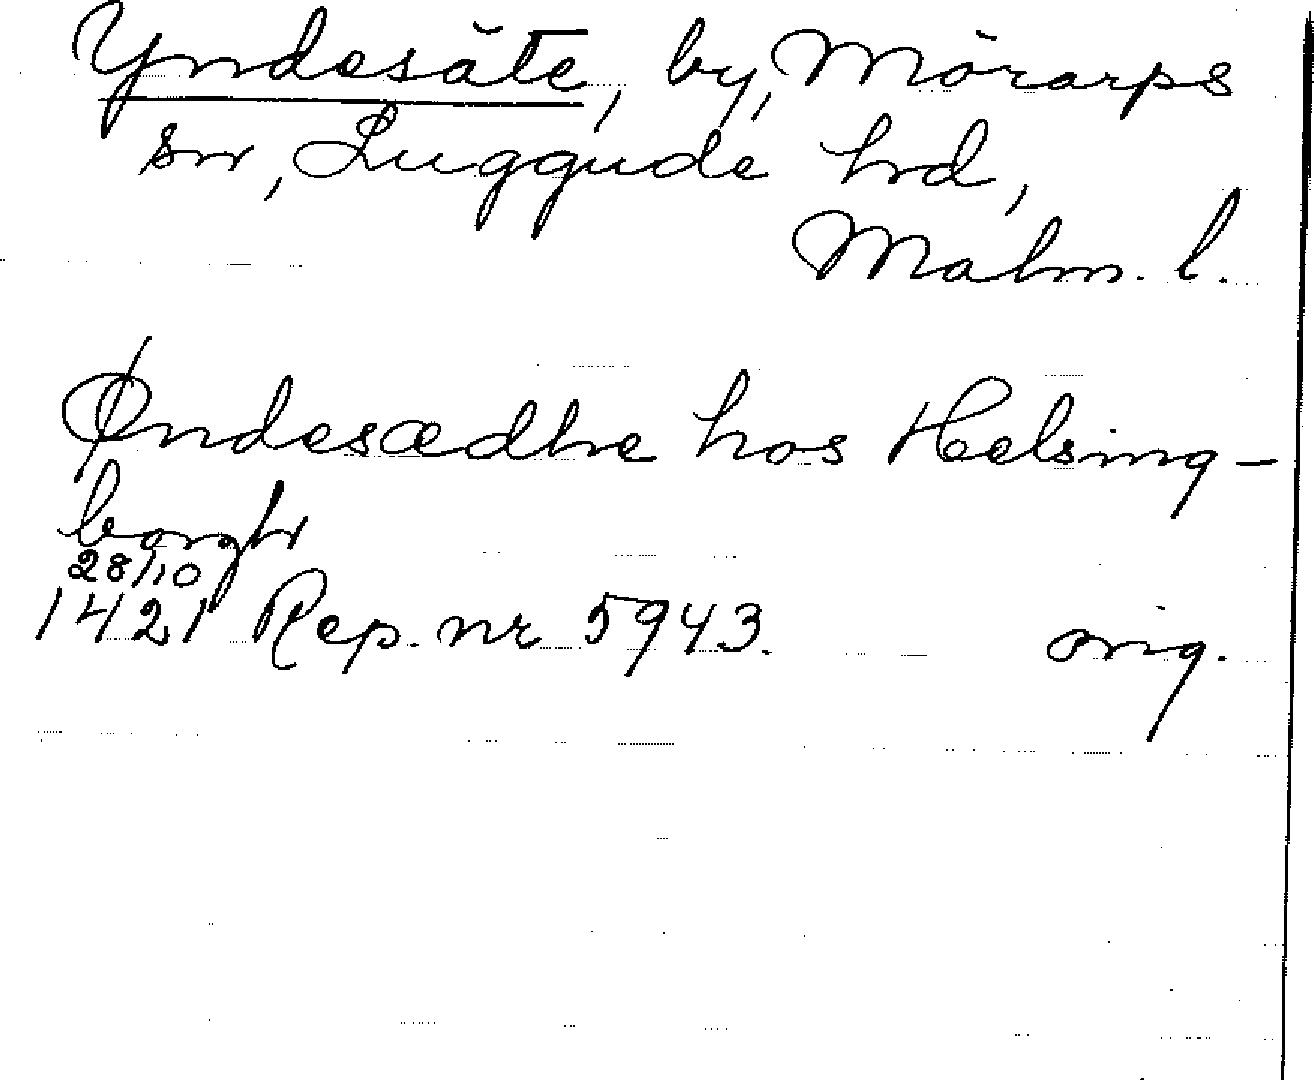 Yndesäte, by, Mörarps
sn, Luggude hd,
Malm. l.
Øndesædhe hos Helsing-
borgh
28/10
1421 Rep. nr 5943. orig.